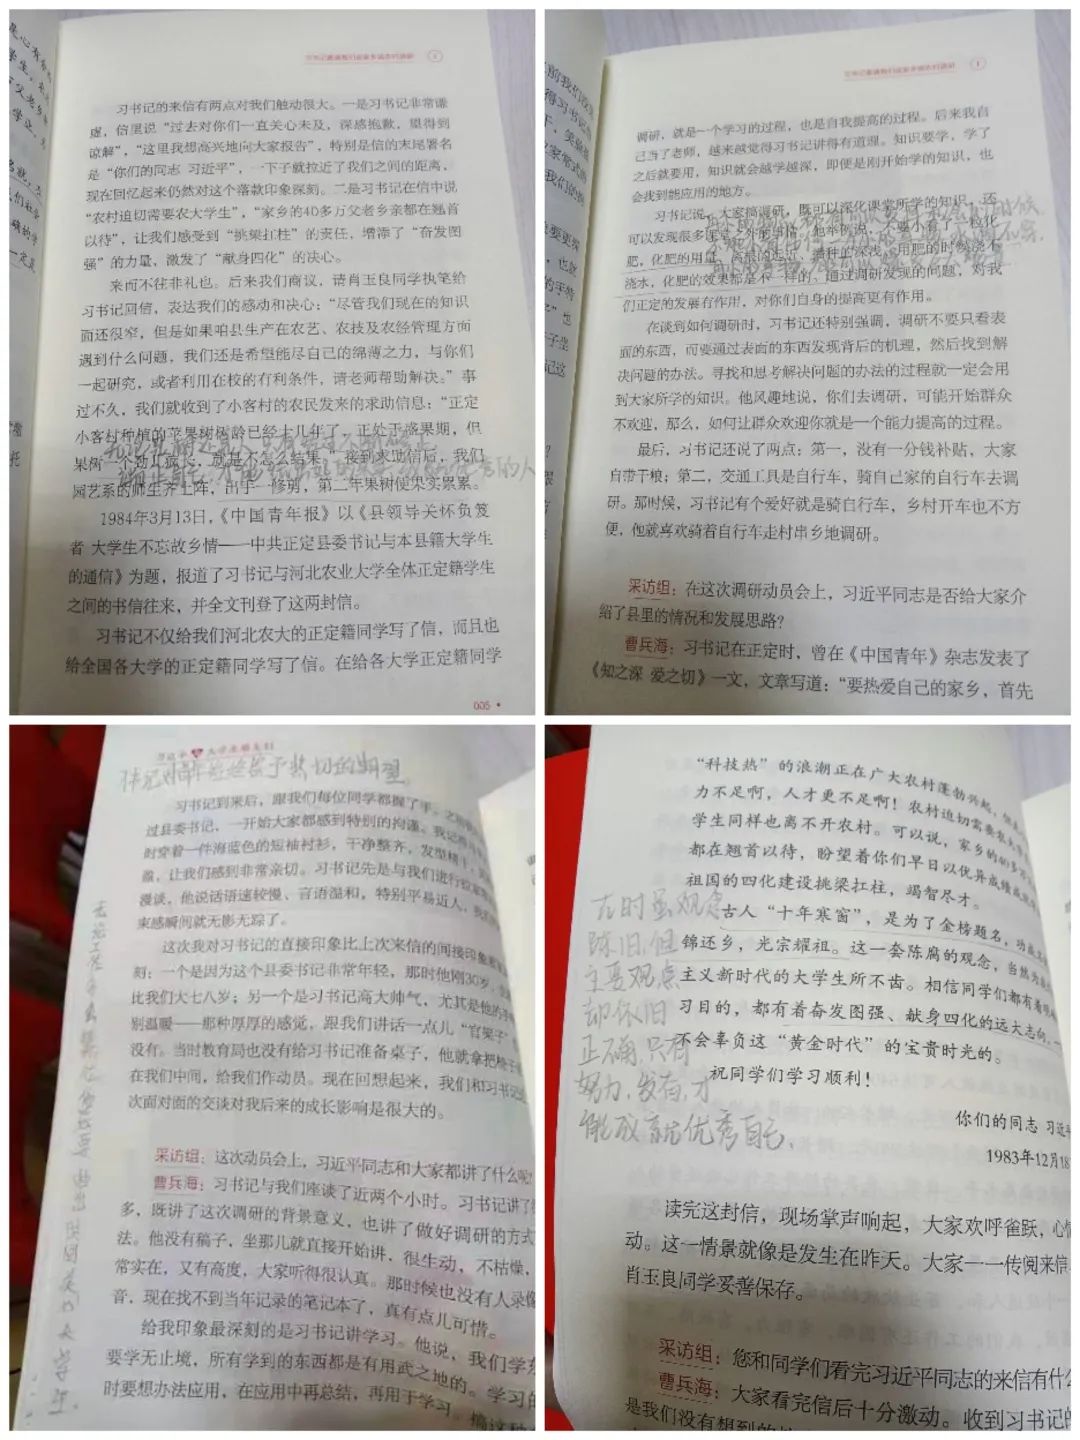 习书记邀请我们回家乡搞农村调研 1
习书记的来信有两点对我们触动很大。一是习书记非常谦
虚，信里说“过去对你们一直关心未及，深感抱歉，望得到
谅解”，“这里我想高兴地向大家报告”，特别是信的末尾署名
是“你们的同志 习近平”，一下子就拉近了我们之间的距离，
现在回忆起来仍然对这个落款印象深刻。二是习书记在信中说
“农村迫切需要农大学生”，“家乡的40多万父老乡亲都在翘首
以待”，让我们感受到“挑梁扛柱”的责任，增添了“奋发图
强”的力量，激发了“献身四化”的决心。
来而不往非礼也。后来我们商议，请肖玉良同学执笔给
习书记回信，表达我们的感动和决心：“尽管我们现在的知识
面还很窄，但是如果咱县生产在农艺、农技及农经管理方面
遇到什么问题，我们还是希望能尽自己的绵薄之力，与你们
一起研究，或者利用在校的有利条件，请老师帮助解决。”事
过不久，我们就收到了小客村的农民发来的求助信息：“正定
小客村种植的苹果树树龄已经十几年了，正处于盛果期，但
果树一个劲儿疯长，就是不怎么结果。”接到求助信后，我们
园艺系的师生齐上阵，出手一修剪，第二年果树便果实累累。
1984年3月13日，《中国青年报》以《县领导关怀负笈
者 大学生不忘故乡情——中共正定县委书记与本县籍大学生
的通信》为题，报道了习书记与河北农业大学全体正定籍学生
之间的书信往来，并全文刊登了这两封信。
习书记不仅给我们河北农大的正定籍同学写了信，而且也
给全国各大学的正定籍同学写了信。在给各大学正定籍同学
005
习书记邀请我们回家乡搞农村调研 1
调研，就是一个学习的过程，也是自我提高的过程。后来我自
己当了老师，越来越觉得习书记讲得有道理。知识要学，学了
之后就要用，知识就会越学越深，即便是刚开始学的知识，也
会找到能应用的地方。
习书记说，大家搞调研，既可以深化课堂所学的知识，还
可以发现很多课堂之外的事情。他举例说，不要小看了一粒化
肥，化肥的用量、离根的远近、播种的深浅、用肥的时候浇不
浇水，化肥的效果都是不一样的。通过调研发现的问题，对我
们正定的发展有作用，对你们自身的提高更有作用。
在谈到如何调研时，习书记还特别强调，调研不要只看表
面的东西，而要通过表面的东西发现背后的机理，然后找到解
决问题的办法。寻找和思考解决问题的办法的过程就一定会用
到大家所学的知识。他风趣地说，你们去调研，可能开始群众
不欢迎，那么，如何让群众欢迎你就是一个能力提高的过程。
最后，习书记还说了两点：第一，没有一分钱补贴，大家
自带干粮；第二，交通工具是自行车，骑自己家的自行车去调
研。那时候，习书记有个爱好就是骑自行车，乡村开车也不方
便，他就喜欢骑着自行车走村串乡地调研。
采访组：在这次调研动员会上，习近平同志是否给大家介
绍了县里的情况和发展思路？
曹兵海：习书记在正定时，曾在《中国青年》杂志发表了
《知之深 爱之切》一文，文章写道：“要热爱自己的家乡，首先
习近平与大学生朋友们
习书记到来后，跟我们每位同学都握了手。之前
过县委书记，一开始大家都感到特别的拘谨。我记得
时穿着一件海蓝色的短袖衬衫，干净整齐，发型
蔼，让我们感到非常亲切。习书记先是与我们进行拉家常
漫谈。他说话语速较慢、言语温和，特别平易近人，我们
束感瞬间就无影无踪了。
这次我对习书记的直接印象比上次来信的间接印象
刻：一个是因为这个县委书记非常年轻，那时他刚30岁，
比我们大七八岁；另一个是习书记高大帅气，尤其是他的手
别温暖——那种厚厚的感觉，跟我们讲话一点儿“官架子”
没有。当时教育局也没有给习书记准备桌子，他就拿把椅子
在我们中间，给我们作动员。现在回想起来，我们和习书记
次面对面的交谈对我后来的成长影响是很大的。
采访组：这次动员会上，习近平同志和大家都讲了什么呢？
曹兵海：习书记与我们座谈了近两个小时。习书记讲了
多，既讲了这次调研的背景意义，也讲了做好调研的方式
法。他没有稿子，坐那儿就直接开始讲，很生动，不枯燥，
常实在，又有高度，大家听得很认真。那时候也没有人录像
音，现在找不到当年记录的笔记本了，真有点儿可惜。
给我印象最深刻的是习书记讲学习。他说，我们学东
要学无止境，所有学到的东西都是有用武之地的。学习的
时要想办法应用，在应用中再总结，再用于学习。搞这种
“科技热”的浪潮正在广大农村蓬勃兴起，但
力不足啊，人才更不足啊！农村迫切需要农大学
学生同样也离不开农村。可以说，家乡的40多万
都在翘首以待，盼望着你们早日以优异成绩
祖国的四化建设挑梁扛柱，竭智尽才。
古人“十年寒窗”，是为了金榜题名，功成
锦还乡，光宗耀祖。这一套陈腐的观念，当然为
主义新时代的大学生所不齿。相信同学们都有着明
习目的，都有着奋发图强、献身四化的远大志向，一
不会辜负这“黄金时代”的宝贵时光的。
祝同学们学习顺利！
你们的同志 习近平
1983年12月18
古时虽观念
陈旧，但
主要观点
却依旧
正确，只有
努力，发奋，才
能成就优秀自己、
读完这封信，现场掌声响起，大家欢呼雀跃，心情
动。这一情景就像是发生在昨天。大家一一传阅来信
肖玉良同学妥善保存。
采访组：您和同学们看完习近平同志的来信有什么
曹兵海：大家看完信后十分激动。收到习书记的
是我们没有想到的